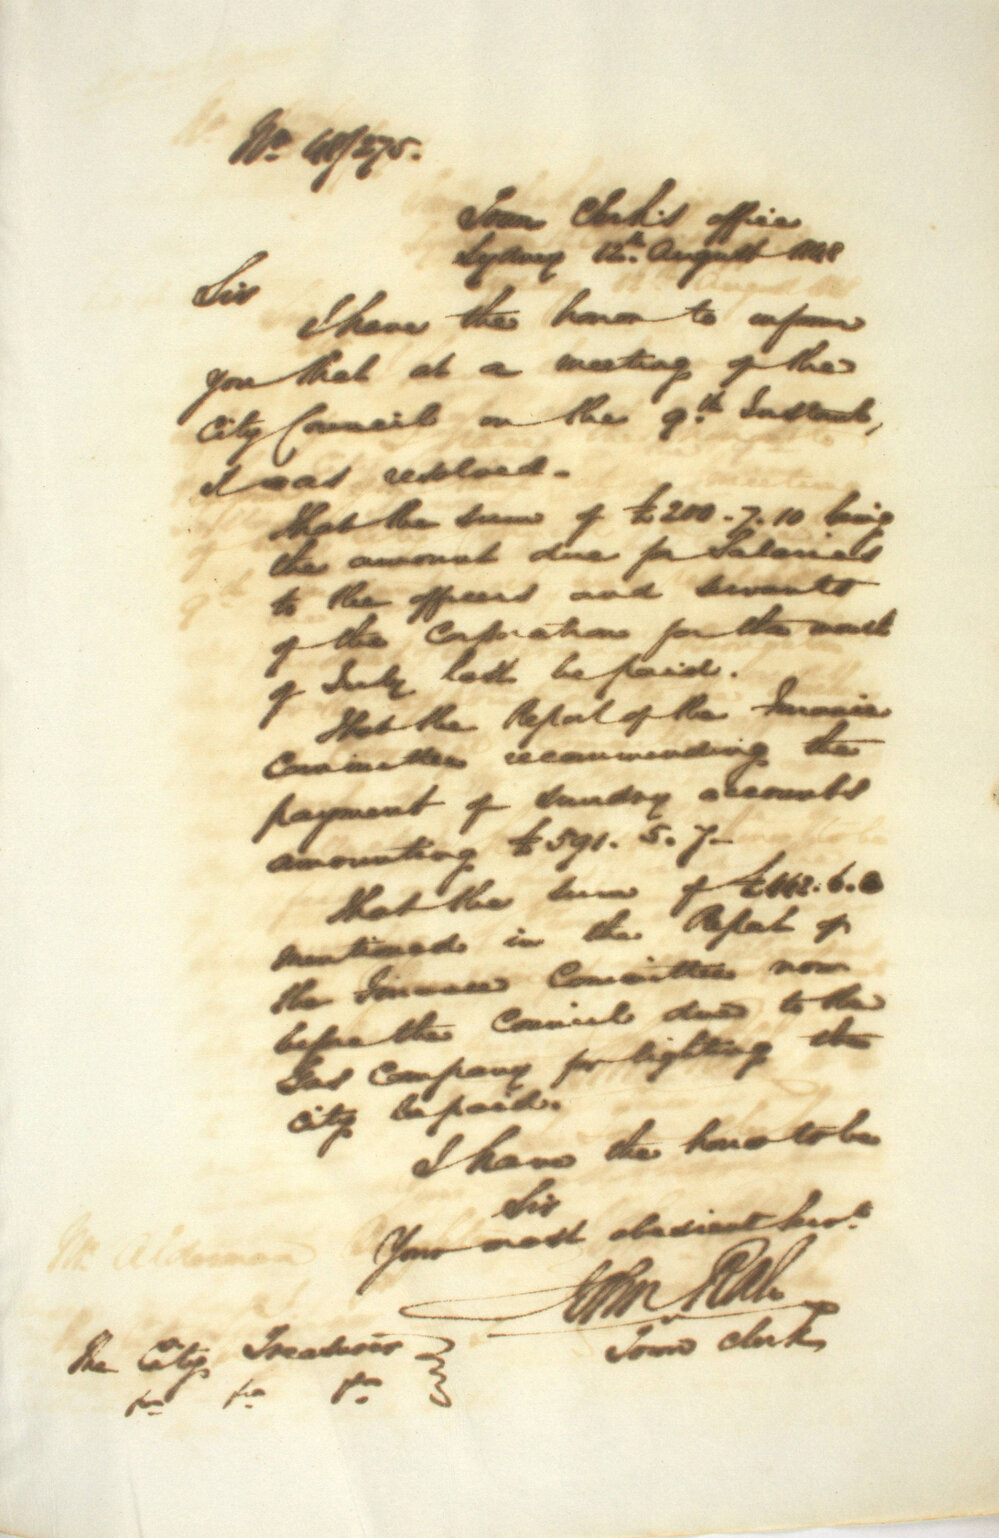 No 48/275.
Town Clerk's office
Sydney 12th August 1848
Sir
I have the honor to inform
you that at a meeting of the
City Council on the 9th Instant,
I was resolved.
That the sum of £200.7.10 being
the amount due for Salaries
to the officers and servants
of the Corporation for the month
of July last be paid.
That the Report of the Finance
Committee recommending the
payment of sundry accounts
amounting £591.5.7
That the sum of
mentioned in the Report of
the Finance Committee now
before the Council due to the
Gas Company for lighting the
city be paid.
I have the honor to be
Sir
Your most obedient Servt.
John Rae
Town Clerk
The City Treasurer
Mr Alderman